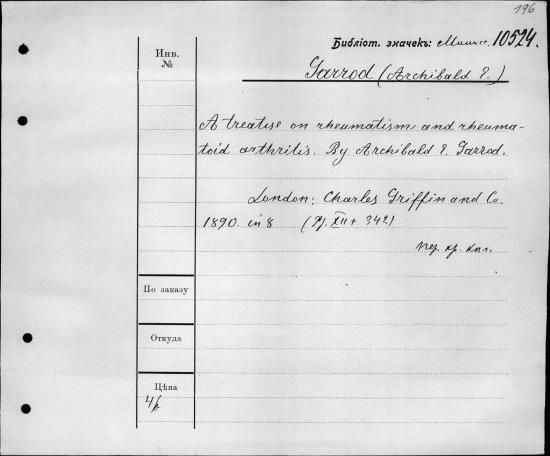 196
Библіот. значекъ: 10524.
Инв.
№
Garrod (Archibald E.)
A treatise on rheumatism and rheuma-
toid arthritis. By Archibald E. Garrod.
London: Charles Griffin and Co.
1890. in 8 (Pj. XII + 342)
По заказу
Откуда
Цѣна